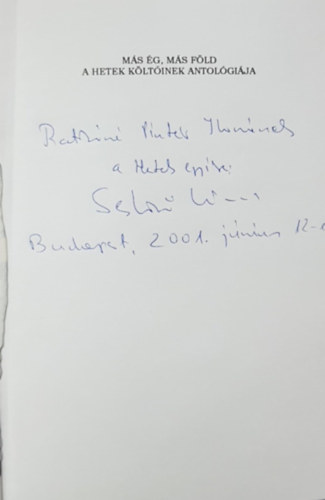 MÁS ÉG, MÁS FÖLD
A HETEK KÖLTŐINEK ANTOLÓGIÁJA
Pintér Ilonának
a Hetek egyike:
Budapest, 2001. június 12-